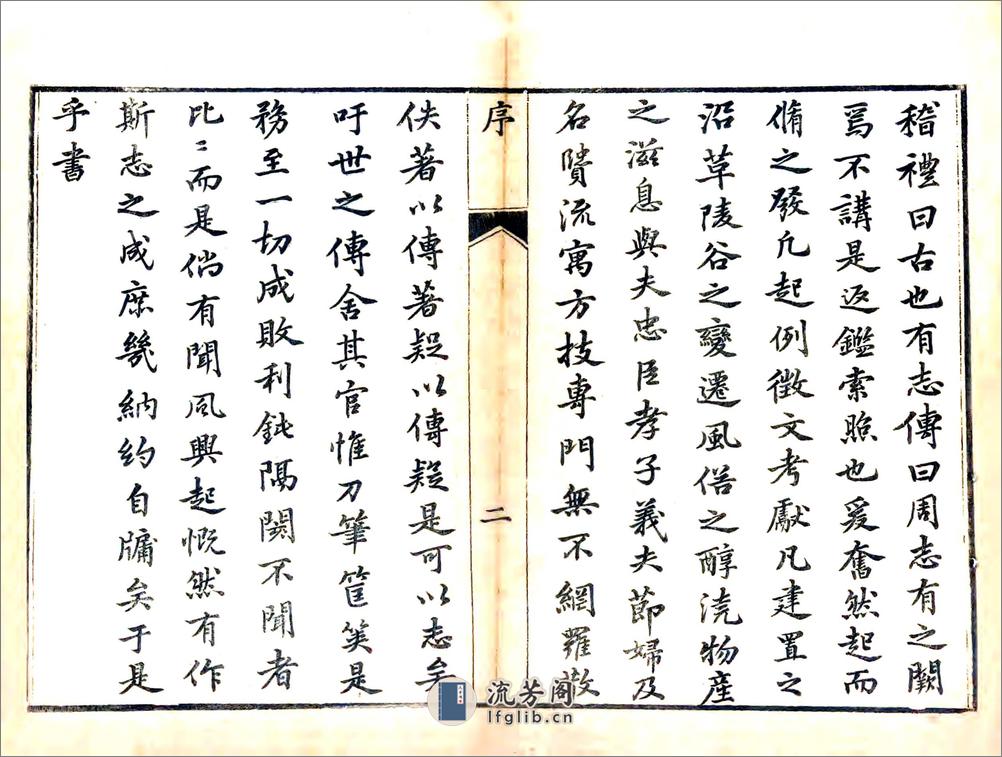 稽禮曰古也有志傳曰周志有之闕
焉不講是返鑑索照也爰奮然起而
脩之發凡起例徵文考獻凡建置之
沿革陵谷之變遷風俗之醇澆物產
之滋息與夫忠臣孝子義夫節婦及
名賢流寓方技專門無不網羅散
序
二
佚著以傳著疑以傳疑是可以志矣
吁世之傳舍其官惟刀筆筐篋是
務至一切成敗利鈍隔閡不聞者
比〻而是倘有聞風興起慨然有作
斯志之成庶幾納約自牖矣于是
乎書
流芳阁
lfglib.cn